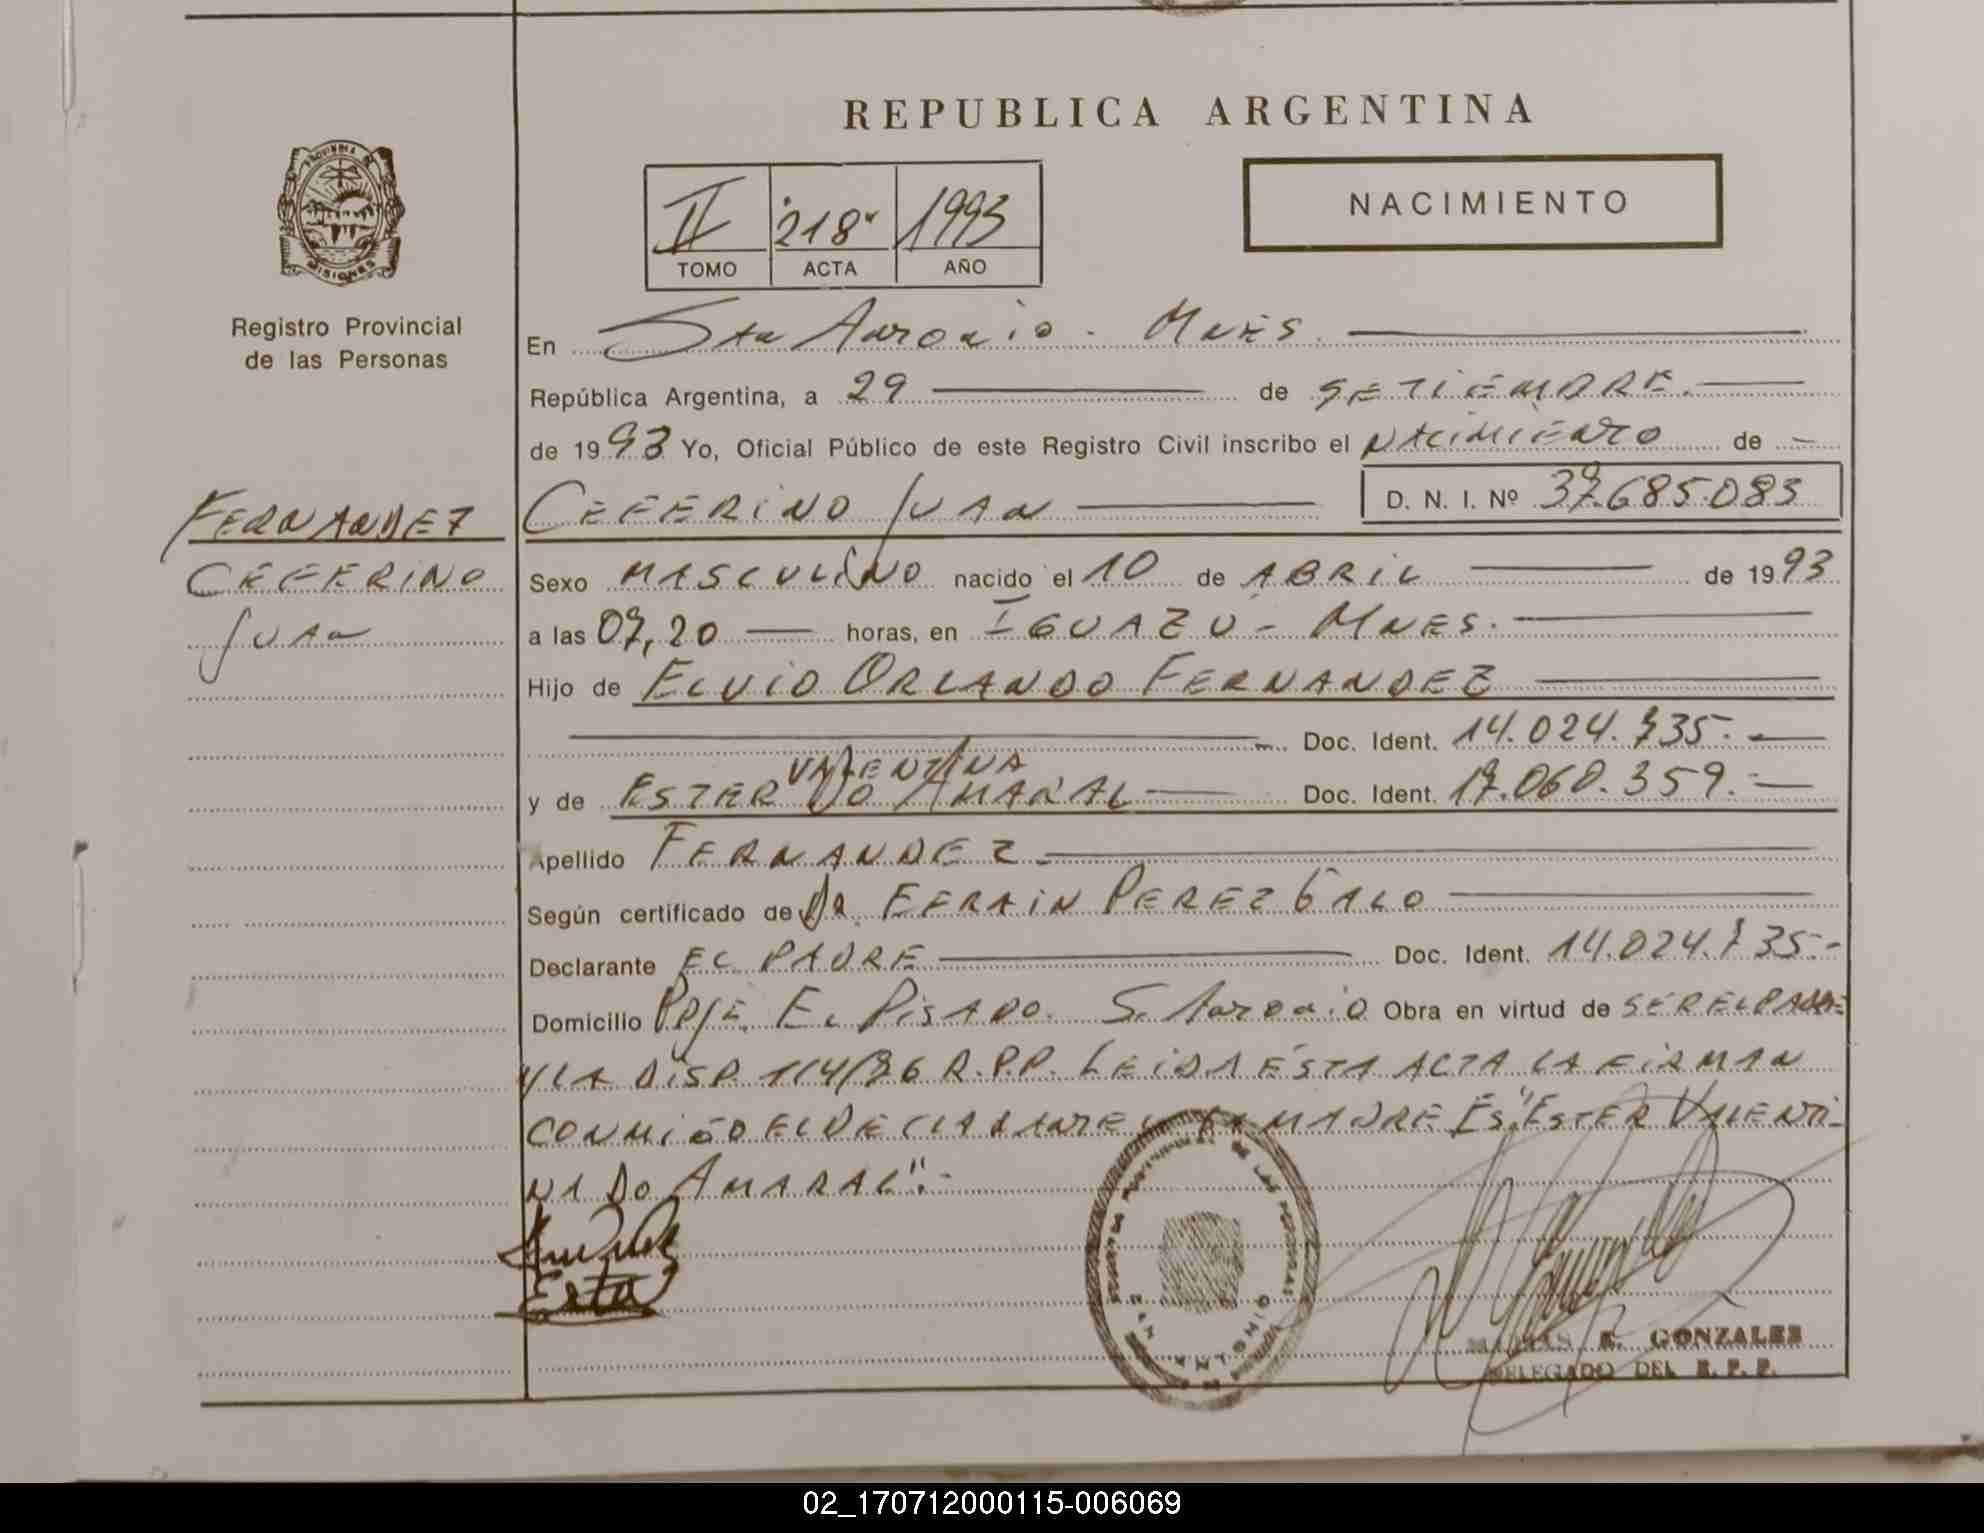 REPUBLICA ARGENTINA
PROVINCIA DE MISIONES
Registro Provincial
de las Personas
II 218 1993
TOMO ACTA AÑO
NACIMIENTO
En San Antonio - Mnes.
República Argentina, a 29 de SETIEMBRE.
de 1993 Yo, Oficial Público de este Registro Civil inscribo el NACIMIENTO de
CEFERINO JUAN D. N. I. Nº 37.685.083
FERNANDEZ
CEFERINO
JUAN
Sexo MASCULINO nacido el 10 de ABRIL de 1993
a las 07,20 horas, en IGUAZU - MNES.
Hijo de ELVIO ORLANDO FERNANDEZ
Doc. Ident. 14.024.735.-
VALENTINA
y de ESTER DO AMARAL Doc. Ident. 17.060.359.-
Apellido FERNANDEZ
Según certificado de DR. EFRAIN PEREZ GALO
Declarante EL PADRE Doc. Ident. 14.024.735.-
Domicilio PRJE. EL PISADO. S. Antonio Obra en virtud de SER EL PADRE
Y LA DISP. 114/86 R.P.P. LEIDA ESTA ACTA LA FIRMAN
CONMIGO EL DECLARANTE Y LA MADRE. Es "ESTER VALENTI-
NA DO AMARAL".-
Ester
SAN ANTONIO
MATIAS R. GONZALEZ
DELEGADO DEL R. P. P.
02_170712000115-006069